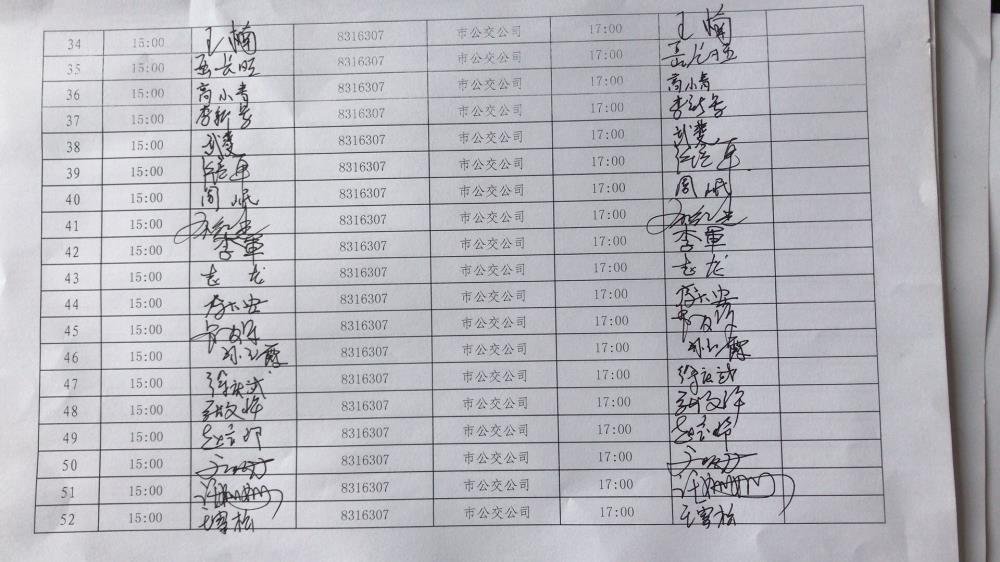 34 15:00 王楠 8316307 市公交公司 17:00 王楠
35 15:00 岳长旺 8316307 市公交公司 17:00 岳长旺
36 15:00 高小青 8316307 市公交公司 17:00 高小青
37 15:00 李新号 8316307 市公交公司 17:00 李新号
38 15:00 8316307 市公交公司 17:00
39 15:00 8316307 市公交公司 17:00
40 15:00 周岷 8316307 市公交公司 17:00 周岷
41 15:00 8316307 市公交公司 17:00
42 15:00 李军 8316307 市公交公司 17:00 李軍
43 15:00 志龙 8316307 市公交公司 17:00 志龙
44 15:00 8316307 市公交公司 17:00
45 15:00 8316307 市公交公司 17:00
46 15:00 8316307 市公交公司 17:00
47 15:00 8316307 市公交公司 17:00
48 15:00 8316307 市公交公司 17:00
49 15:00 8316307 市公交公司 17:00
50 15:00 8316307 市公交公司 17:00
51 15:00 8316307 市公交公司 17:00
52 15:00 王雪松 8316307 市公交公司 17:00 王雪松